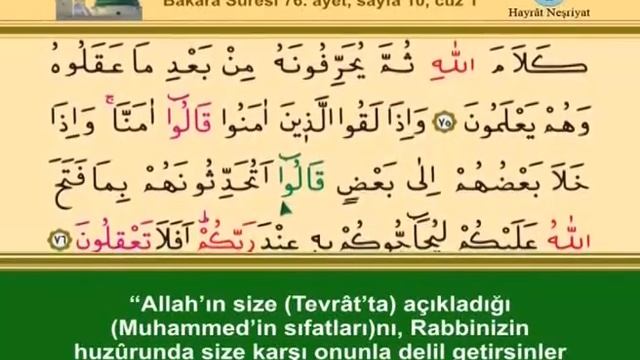 Bakara Sûresi 76. âyet, sayfa 10, cüz 1
Hayrât Neşriyat
كَلَامَ اللّٰهِ ثُمَّ يُحَرِّفُونَهُ مِنْ بَعْدِ مَا عَقَلُوهُ
وَهُمْ يَعْلَمُونَ ﴿٧٥﴾ وَاِذَا لَقُوا الَّذِينَ اٰمَنُوا قَالُٓوا اٰمَنَّاۚ وَاِذَا
خَلَا بَعْضُهُمْ اِلٰى بَعْضٍ قَالُٓوا اَتُحَدِّثُونَهُمْ بِمَا فَتَحَ
اللّٰهُ عَلَيْكُمْ لِيُحَٓاجُّوكُمْ بِهِ عِنْدَ رَبِّكُمْۜ اَفَلَا تَعْقِلُونَ ﴿٧٦﴾
“Allah’ın size (Tevrât’ta) açıkladığı
(Muhammed’in sıfatları)nı, Rabbinizin
huzûrunda size karşı onunla delil getirsinler